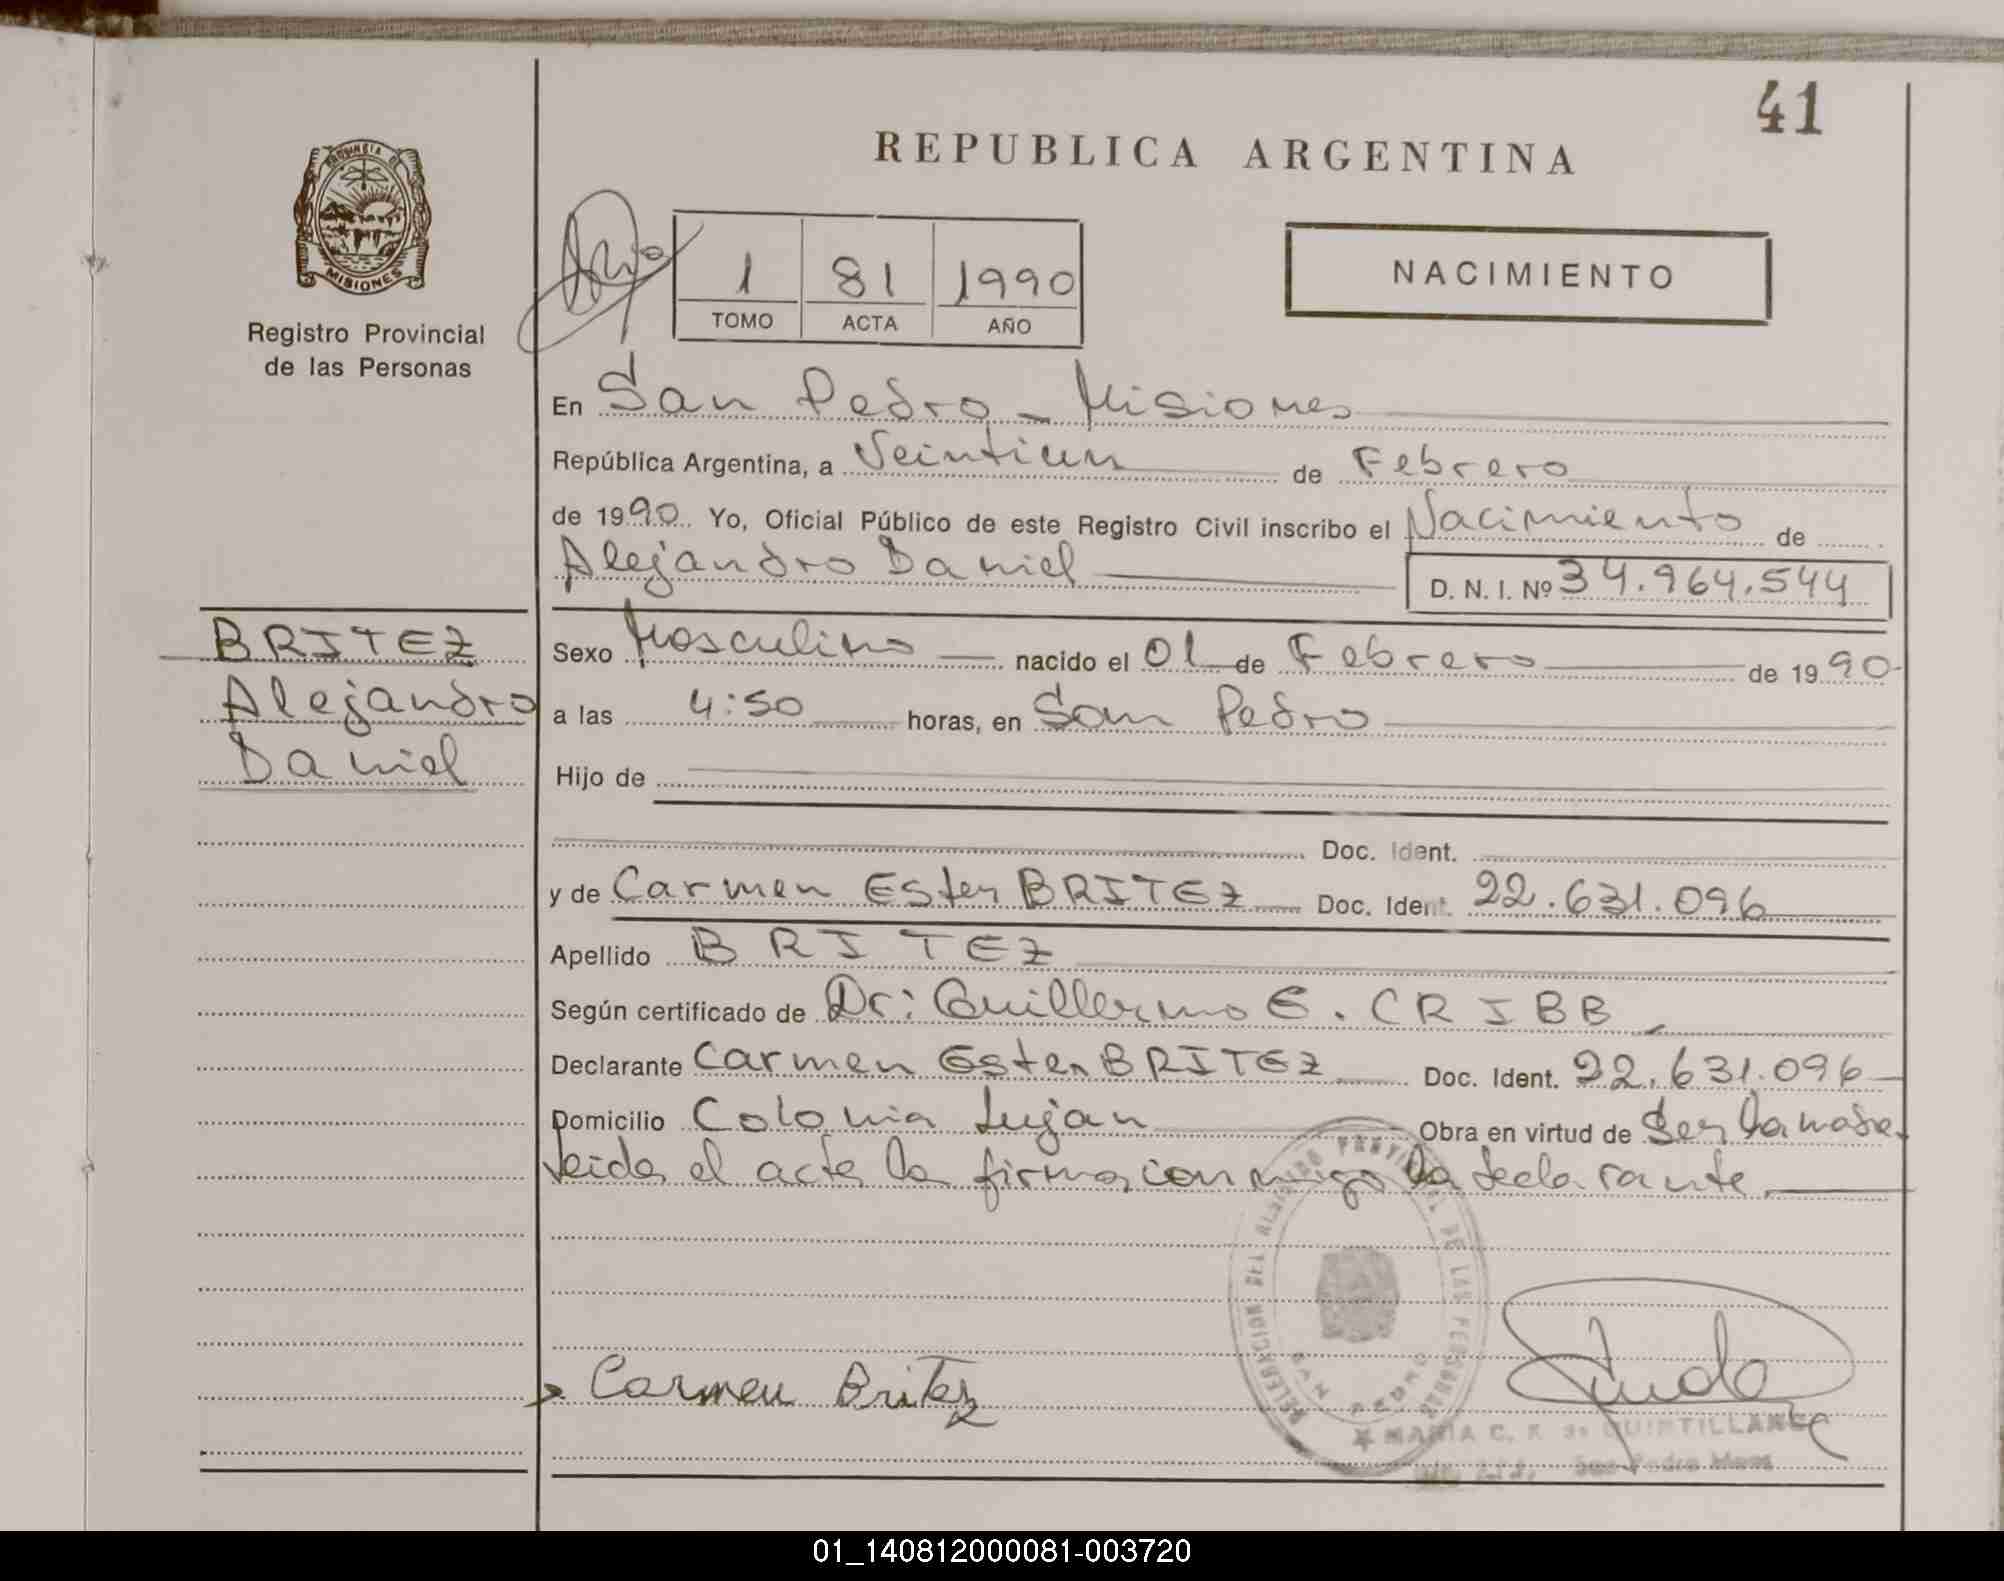 41
REPUBLICA ARGENTINA
PROVINCIA DE
MISIONES
Registro Provincial
de las Personas
1 81 1990
TOMO ACTA AÑO
NACIMIENTO
En San Pedro - Misiones
República Argentina, a Veintiun de Febrero
de 1990. Yo, Oficial Público de este Registro Civil inscribo el Nacimiento de
Alejandro Daniel D. N. I. Nº 34.964.544
BRITEZ
Alejandro
Daniel
Sexo Masculino nacido el 01 de Febrero de 1990
a las 4:50 horas, en San Pedro
Hijo de
Doc. Ident.
y de Carmen Ester BRITEZ Doc. Ident. 22.631.096
Apellido BRITEZ
Según certificado de Dr: Guillermo E. CRIBB
Declarante Carmen Ester BRITEZ Doc. Ident. 22.631.096
Domicilio Colonia Lujan Obra en virtud de Ser la madre.
Leida el acta la firma conmigo la declarante.
Carmen Britez
DELEGACION DEL REGISTRO PROVINCIAL DE LAS PERSONAS
SAN PEDRO
MARIA C. F. de QUINTILLAN
San Pedro Mnes
01_140812000081-003720